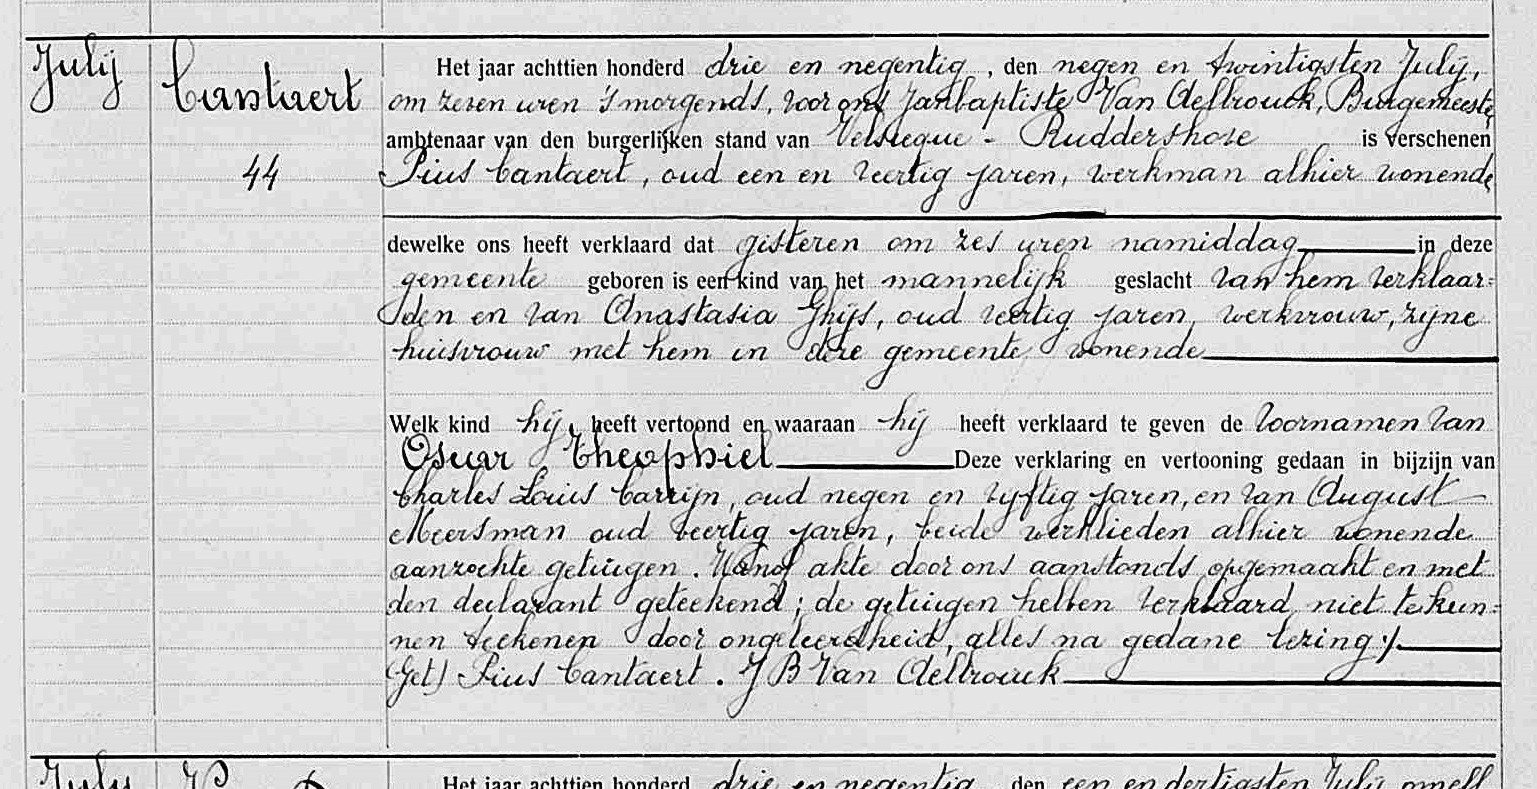 July
Cantaert
44
Het jaar achttien honderd drie en negentig, den negen en twintigsten July,
om zeven uren 's morgends, voor ons Janbaptiste Van Aelbrouck, Burgemeester
ambtenaar van den burgerlijken stand van Velsicque - Ruddershove is verschenen
Pius Cantaert, oud een en veertig jaren, werkman alhier wonende
dewelke ons heeft verklaard dat gisteren om zes uren namiddag in deze
gemeente geboren is een kind van het mannelijk geslacht van hem verklaar=
den en van Anastasia Ghijs, oud veertig jaren, werkvrouw, zijne
huisvrouw met hem in deze gemeente wonende
Welk kind hij heeft vertoond en waaraan hij heeft verklaard te geven de voornamen van
Oscar Theophiel Deze verklaring en vertooning gedaan in bijzijn van
Charles Louis Carrijn, oud negen en vyftig jaren, en van August
Meersman oud veertig jaren, beide werklieden alhier wonende
aanzochte getuigen. Wanof akte door ons aanstonds opgemaakt en met
den declarant geteekend; de getuigen hebben verklaard niet te kun=
nen teekenen door ongeleerdheid, alles na gedane lezing
(Get) Pius Cantaert. J B Van Aelbrouck
July
Het jaar achttien honderd drie en negentig den een en dertigsten July